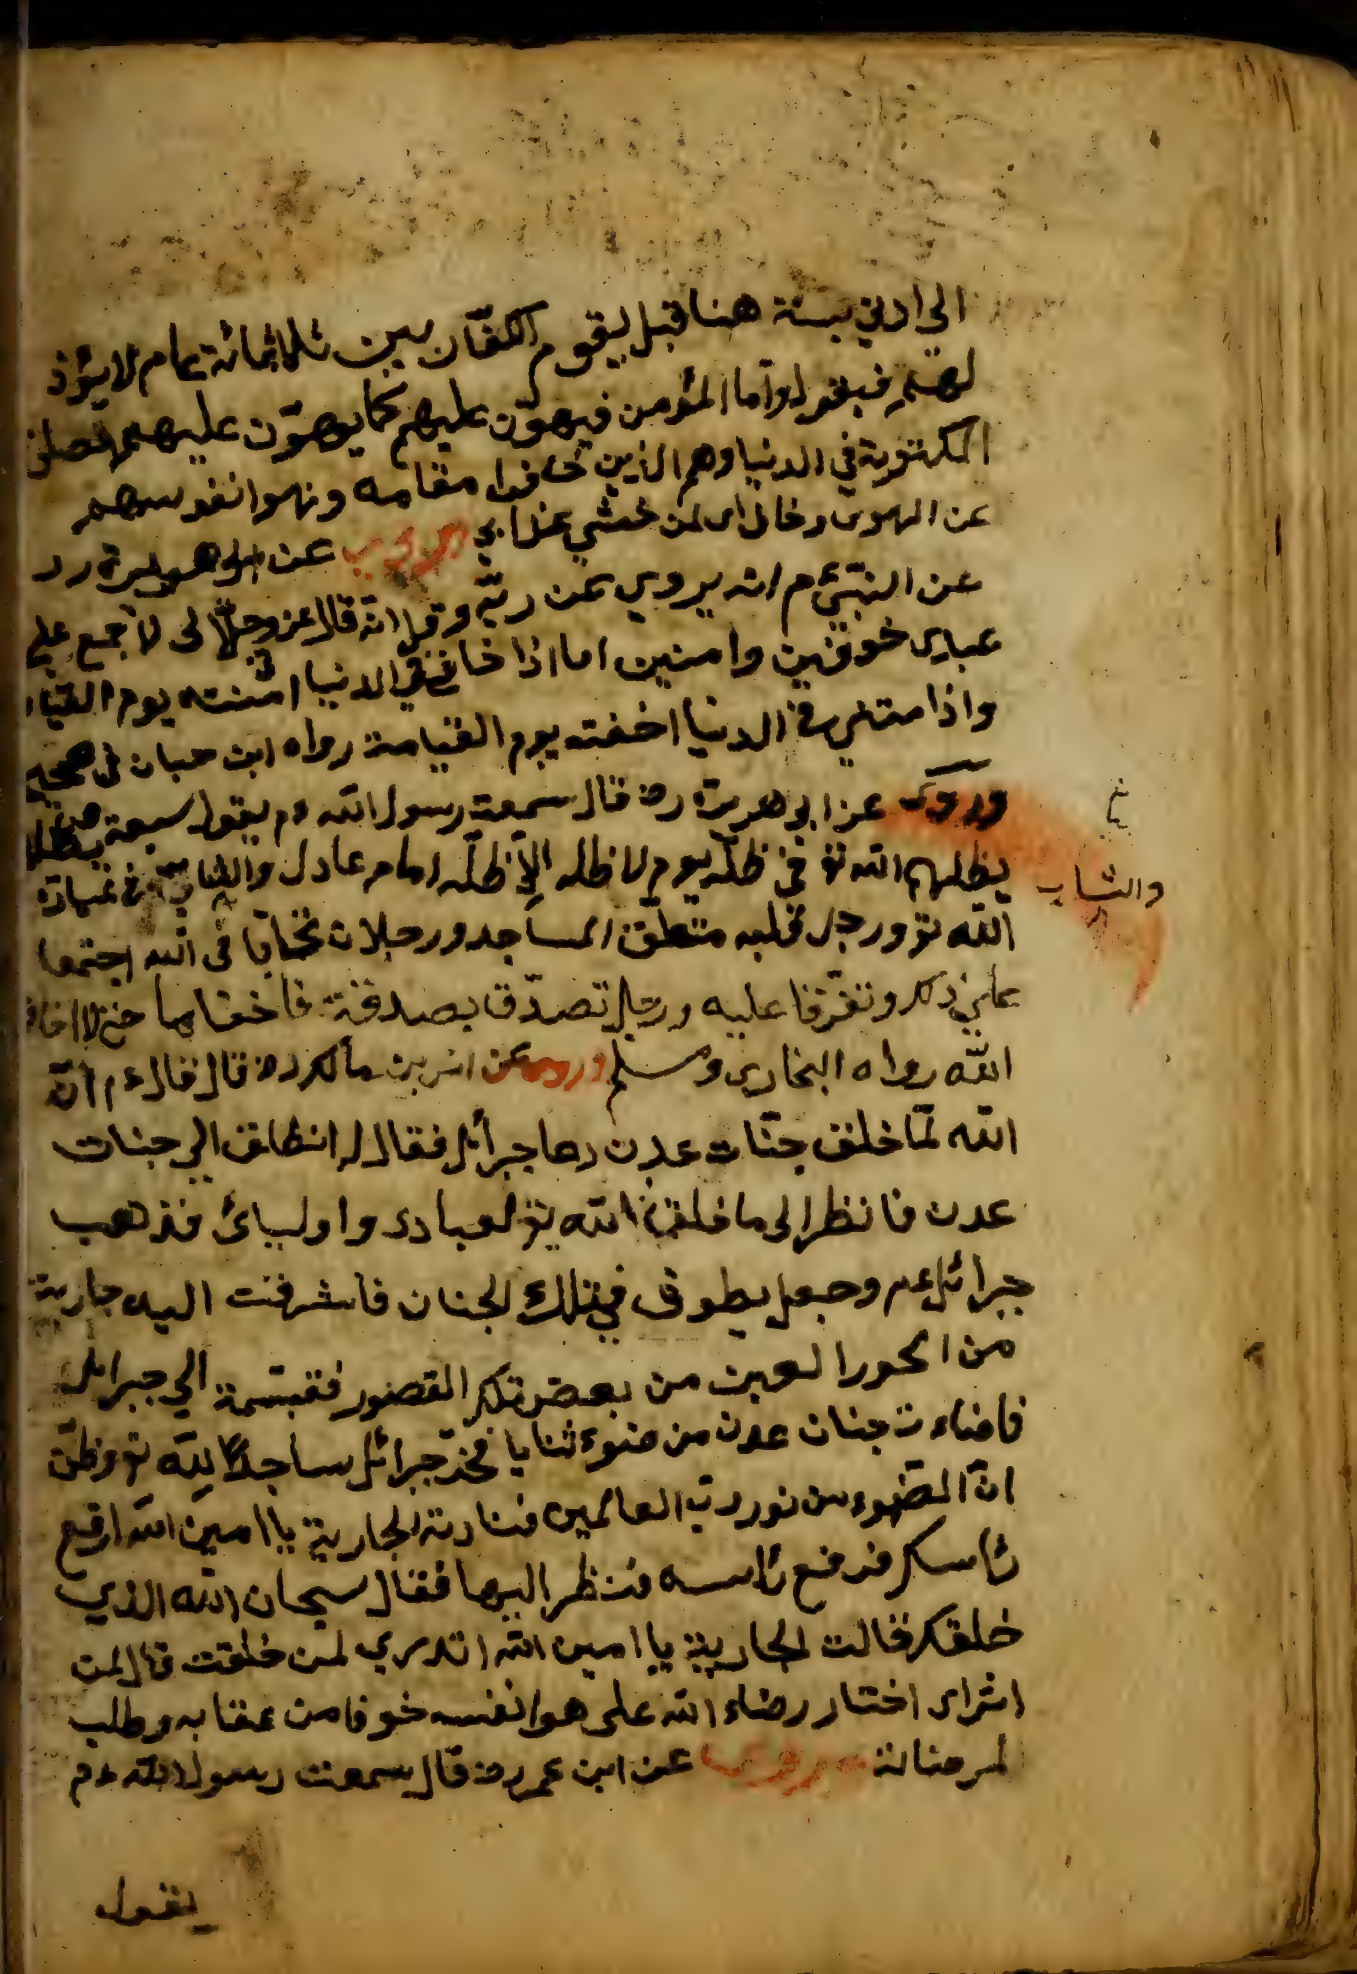 الى ادنى سنة هنا قبل ليقوم الكفار بين ثلاثمائة عام لا يؤذ
لهم فيقول واما المؤمن فيهون عليهم كما يهون عليهم صلوة
المكتوبة في الدنيا وهم الذين خافوا مقامه ونهوا نفوسهم
عن الهوى وخاف اى لمن خشي عذابي وروى عن ابى هريرة رد
عن النبي ءم انه يروي عن ربه وقيل انه قال عز وجل لا اجمع على
عبادى خوفين وامنين اما اذا خافني في الدنيا امنته يوم القيا
واذا منني في الدنيا اخفته يوم القيامة رواه ابن حبان فى صحيحه
وروى عن ابى هريرة رض قال سمعت رسول الله ءم يقول سبعة يظل
يظلهم الله تع في ظله يوم لا ظله الا ظله امام عادل والشاب في عبادة
والشاب
الله تع ورجل قلبه متعلق المساجد ورجلان تحابا فى الله اجتمعا
على ذلك وتفرقا عليه ورجل تصدق بصدقة فاخفاها حتى لا اخاف
الله رواه البخارى ومسلم وروى عن انس بن مالك رض قال قال ءم ان
الله لما خلق جنات عدن دعا جبرائل فقال له انطلق الى جنات
عدن فانظر الى ما خلق الله تع لعبادى واوليائ فذهب
جبرائل ءم وجعل يطوف في تلك الجنان فاشرفت اليه جارية
من الحور العين من بعض تلك القصور فتبسمة الى جبرائل
فاضاءت جنان عدن من ضوء ثنايا فخر جبرائل ساجدا لله تع وظن
ان الضوء من نور رب العالمين فنادته الجارية يا امين الله ارفع
رأسك فرفع رأسه فنظر اليها فقال سبحان الله الذي
خلقك فقالت الجارية يا امين الله اتدري لمن خلقت قال لمن
اثراى اختار رضاء الله على هوا نفسه خوفا من عقابه وطلب
لمرضاته وروى عن ابن عمر رض قال سمعت رسول الله ءم
يقول